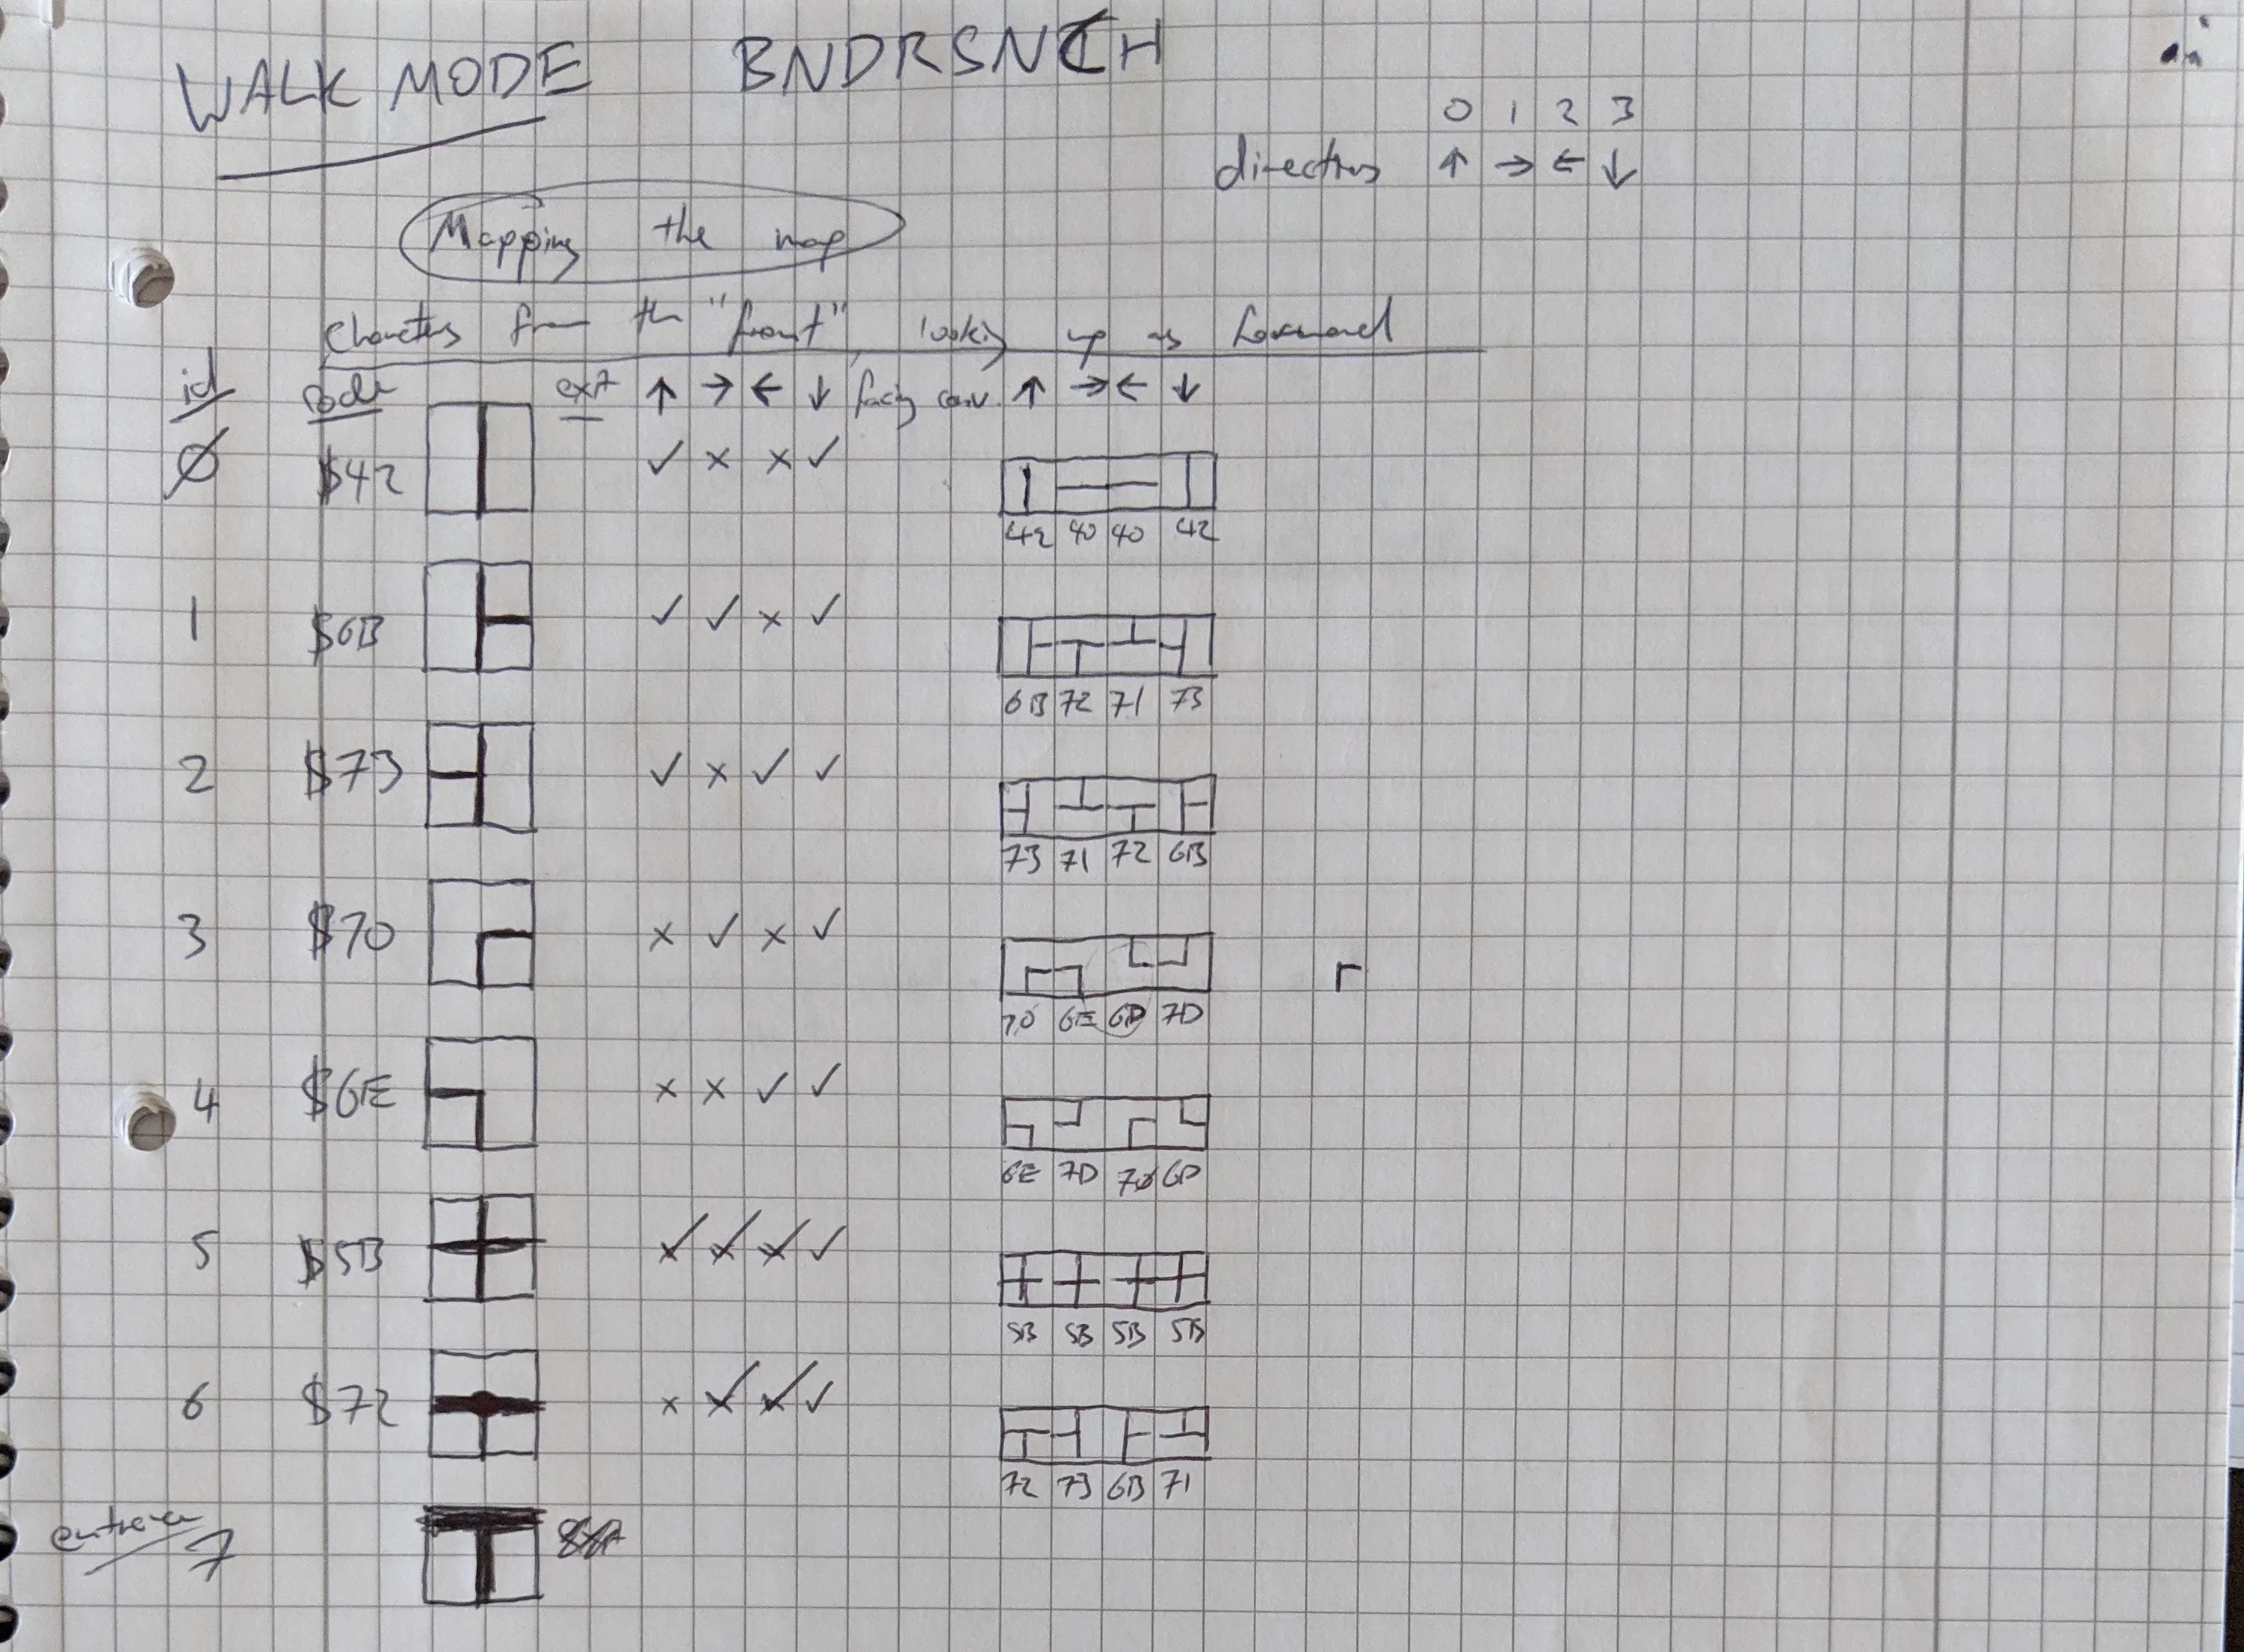 WALK MODE BNDRSNCH
0 1 2 3
directions ↑ → ← ↓
Mapping the map
Characters from the "front", looking up as forward
id code exit ↑ → ← ↓ facing conv. ↑ → ← ↓
Ø $42 ✓ × × ✓
42 40 40 42
1 $6B ✓ ✓ × ✓
6B 72 71 73
2 $73 ✓ × ✓ ✓
73 71 72 6B
3 $70 × ✓ × ✓
70 6E 6D 7D
4 $6E × × ✓ ✓
6E 7D 7Ø 6D
5 $5B ✓ ✓ ✓ ✓
5B 5B 5B 5B
6 $72 × ✓ ✓ ✓
72 73 6B 71
entrance 7